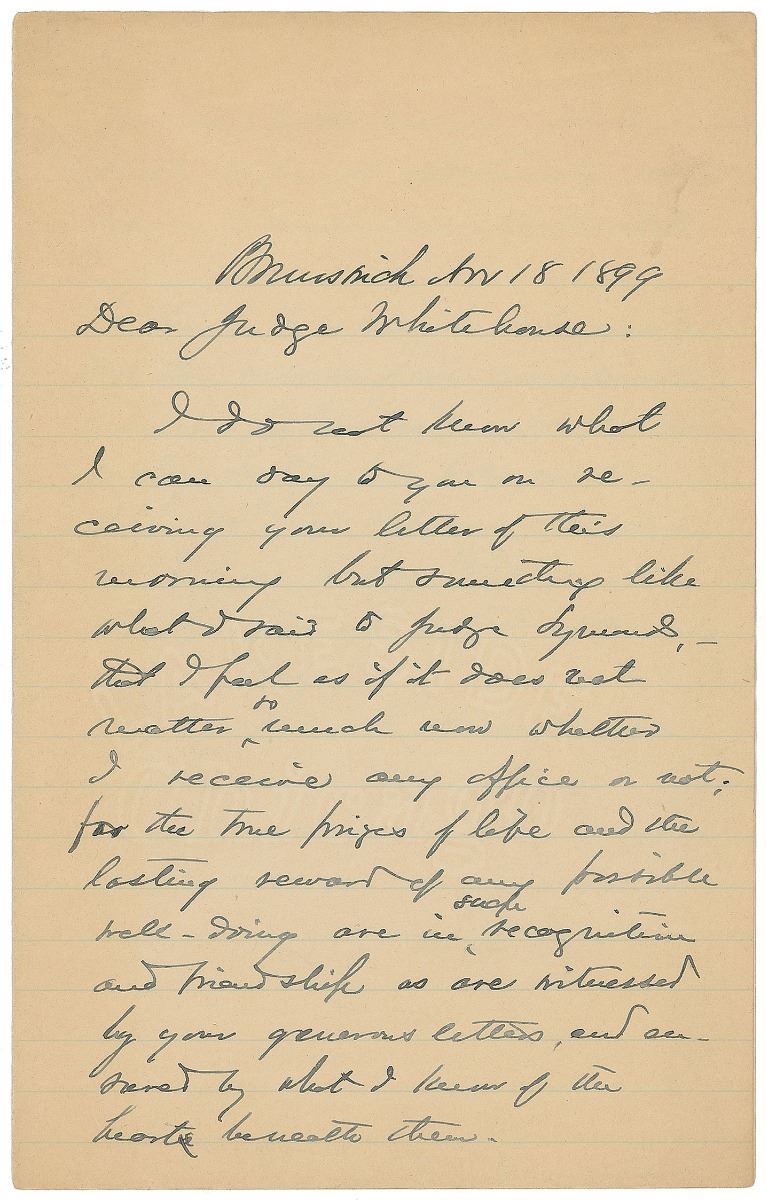 Brunswick Nov 18 1899
Dear Judge Whitehouse:
I do not know what
I can say to you on re-
ceiving your letter of this
morning but something like
what I said to Judge Symonds, -
that I feel as if it does not
matter so much now whether
I receive any office or not;
for the true prizes of life and the
lasting reward of any possible
well-doing are in such recognition
and friendship as are witnessed
by your generous letters, and en-
sured by what I know of the
hearts beneath them.